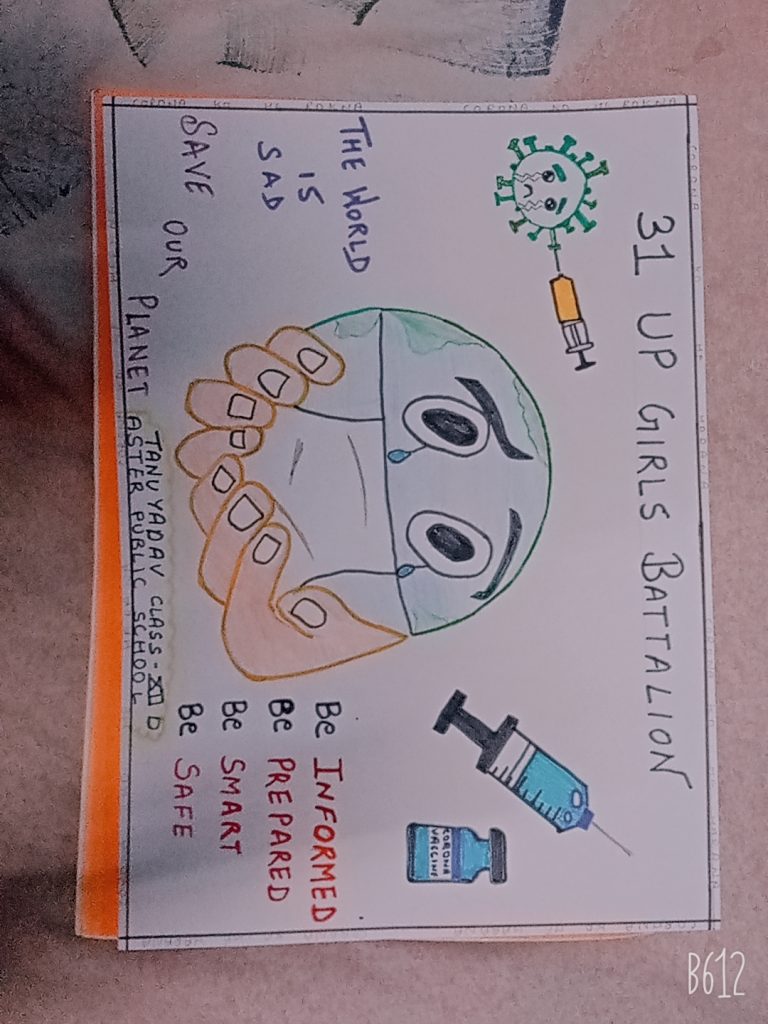 31 UP GIRLS BATTALION
THE WORLD
IS
SAD
SAVE OUR PLANET
Be INFORMED
Be PREPARED
Be SMART
Be SAFE
KORONA
VACCINE
TANU YADAV CLASS-XII D
ASTER PUBLIC SCHOOL
B612